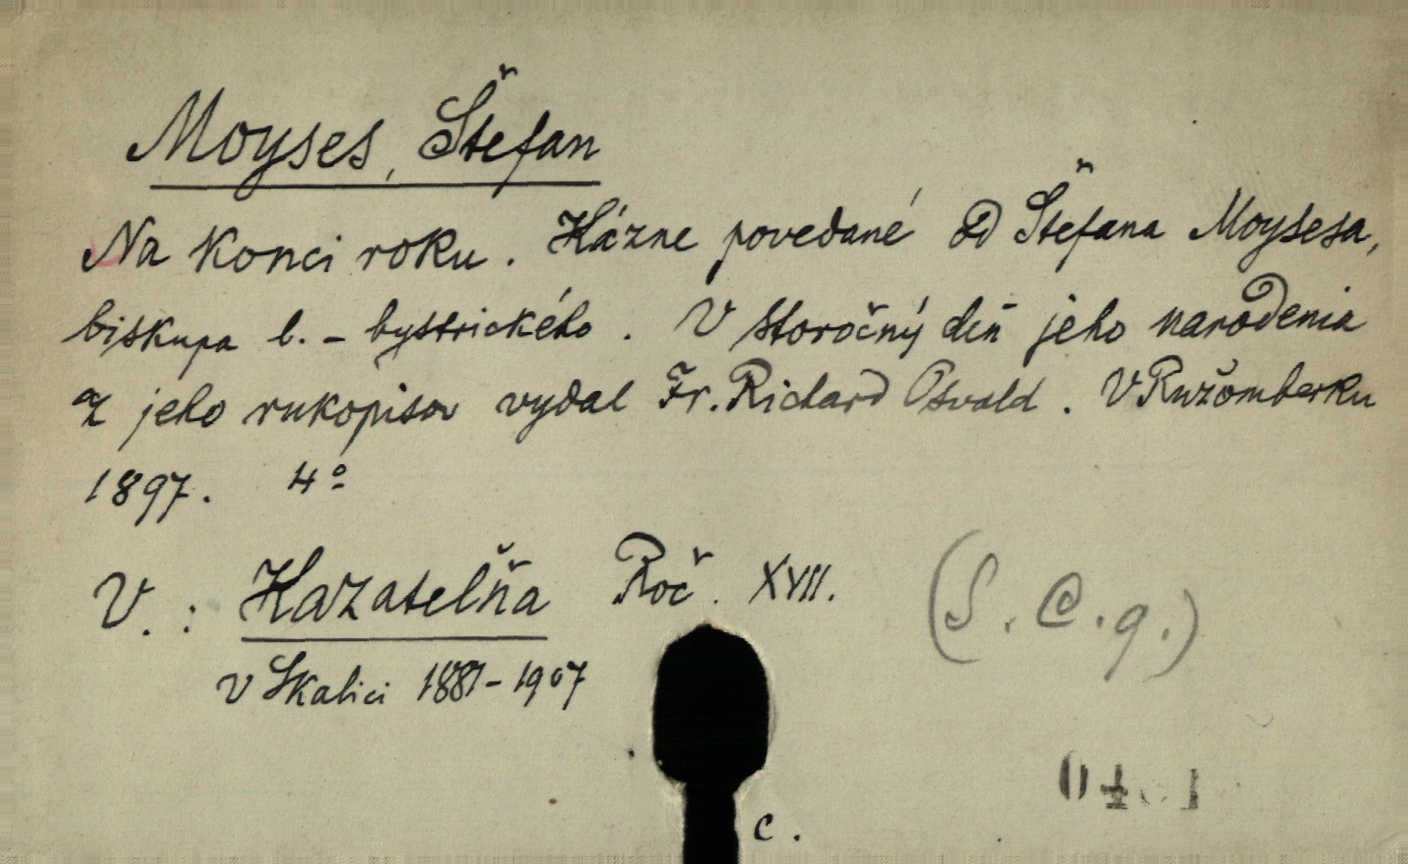 Moyses, Štefan
Na konci roku. Kázne povedané od Štefana Moysesa,
biskupa b.-bystrického. V storočný deň jeho narodenia
z jeho rukopisov vydal Fr. Richard Osvald. V Ružomberku
1897. 4º
V.: Kazatelňa Roč. XVII. (S. C. g.)
v Skalici 1881-1907
c.